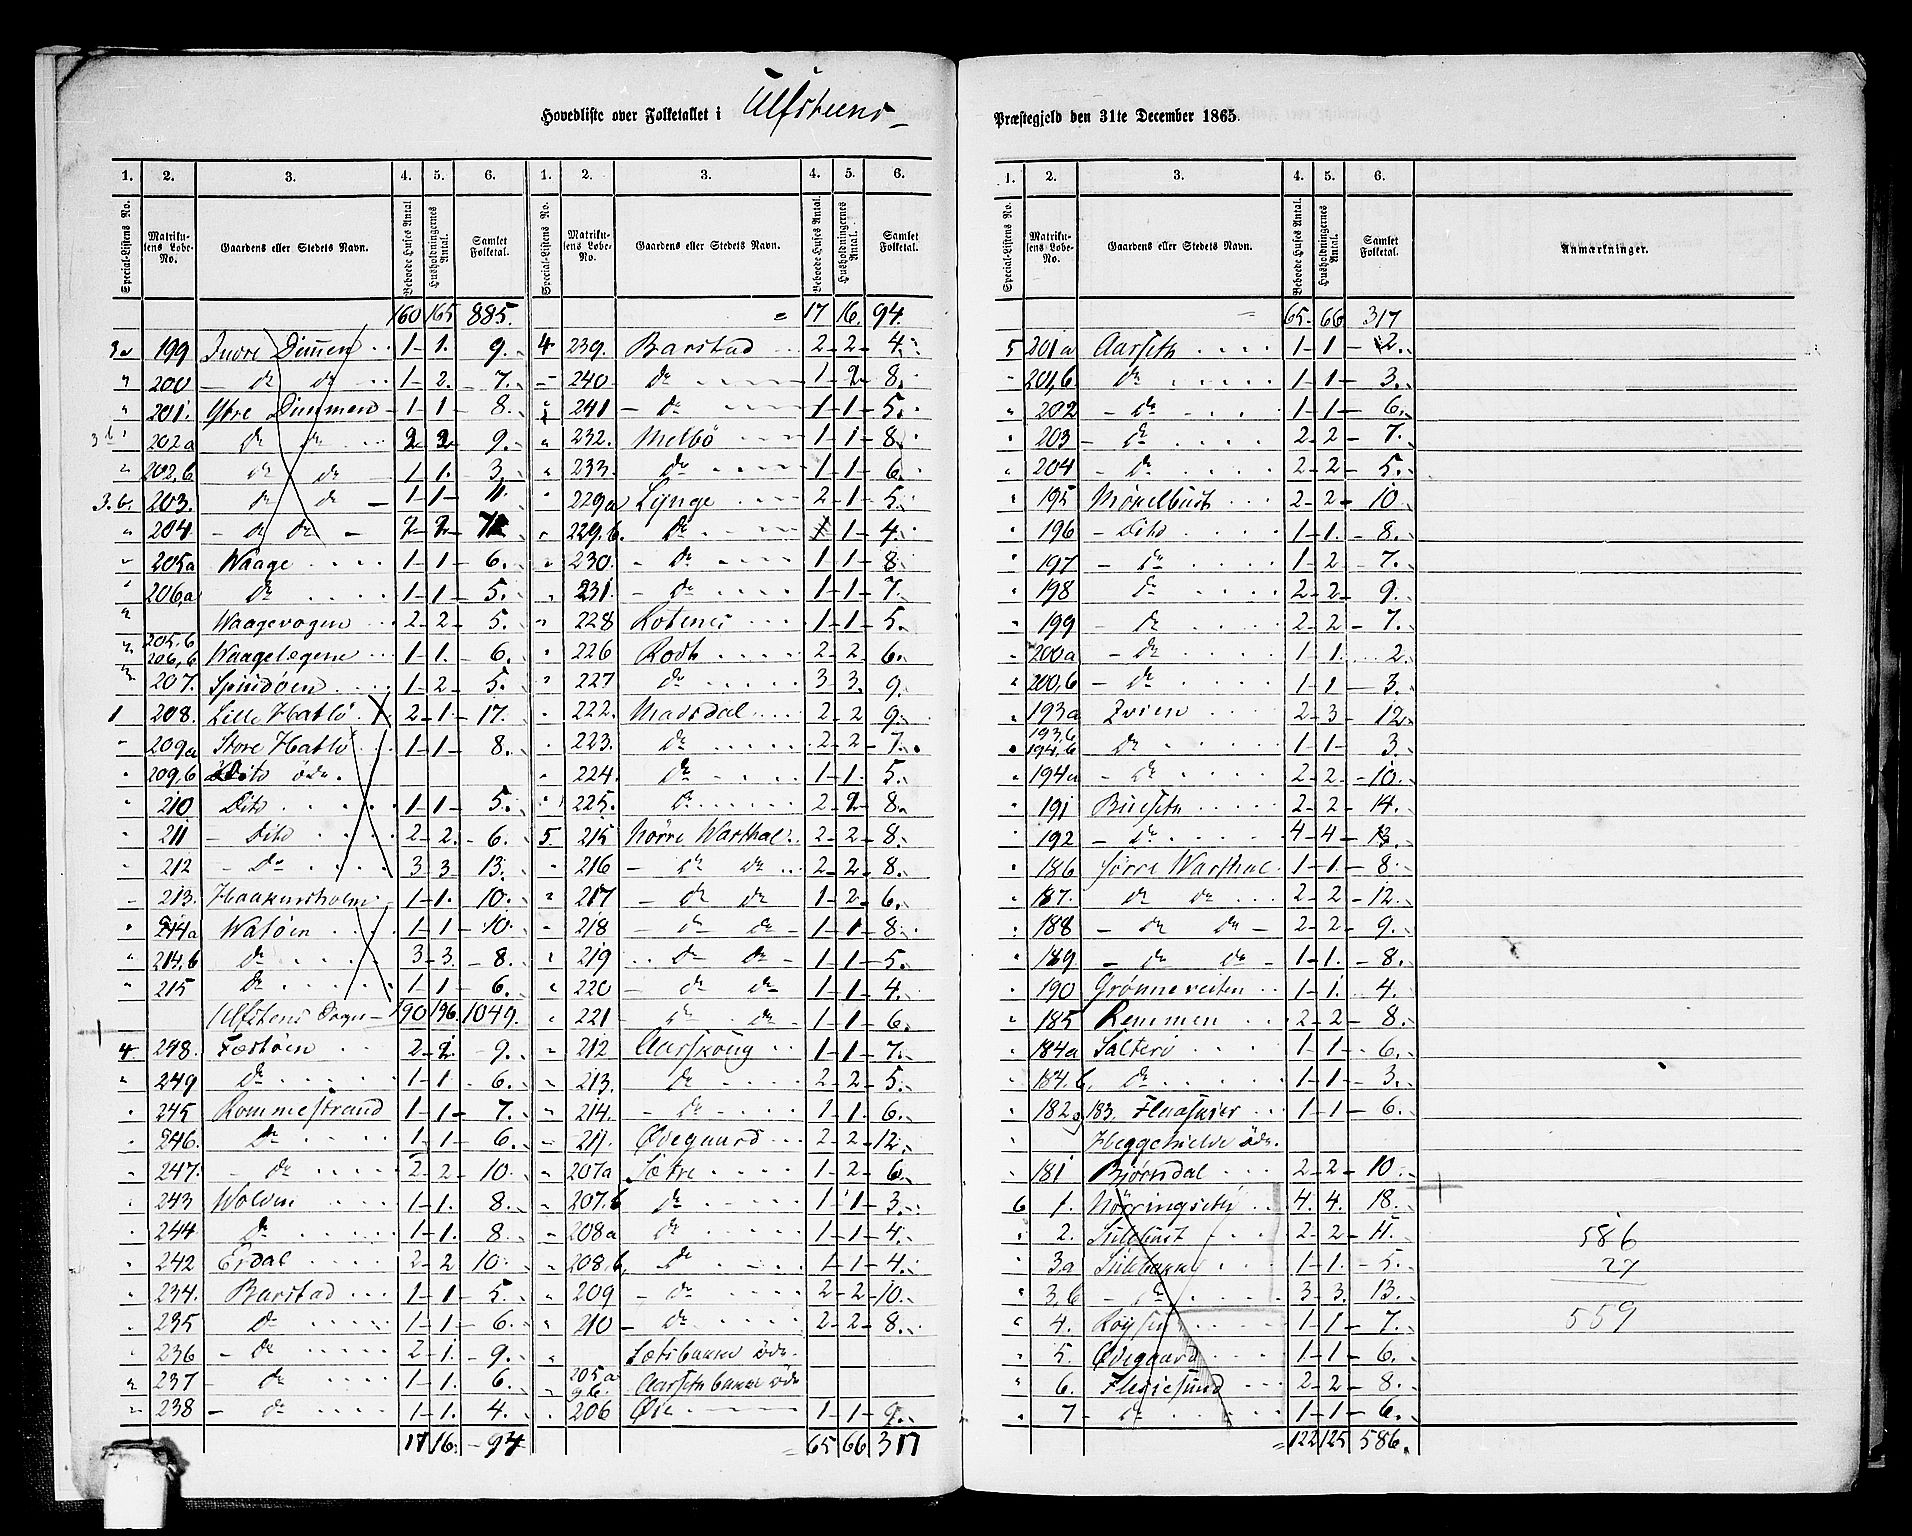 Hovedliste over Folketallet i Ulfsteens Præstegjeld den 31te December 1865.
1. 2. 3. 4. 5. 6. 1. 2. 3. 4. 5. 6.
Special-Listens No. Matrikulens Løbe-No. Gaardens eller Stedets Navn. Beboede Huses Antal Husholdningernes Antal. Samlet Folketal. Special-Listens No. Matrikulens Løbe-No. Gaardens eller Stedets Navn. Beboede Huses Antal. Husholdningernes Antal. Samlet Folketal.
160 165 885. = 17 16. 94.
3a 199 Indre Dimen 1 1. 9. 4 239. Barstad 2 2 4.
" 200 - do do 1 2. 7. - 240 do 1 2. 8.
" 201. Ytre Dimmen 1 1 8. 241 - do 1 1 5.
3b 202a do do 2 2 9. 232. Melbö 1 1 8.
" 202,b do do 1 1. 3. 233. do 1 1 6.
3.b. 203. do do 1 1 11. 229a Lynge 2 1 5.
" 204 - do do 2 2 229,b. do 1 4.
205a Waage 1 1 6. 230. - do 1 1 8
206,a do 1 1 5. 231. - do 1 1 7.
" Waagevogen 2 2 5. 228 Rotenes 1 1 5.
205,b 206,b Waagelægene 1 1. 6. 226 Rodt 2 2 6.
207. Spindöen 1 2 5. 227 do 3 3. 9.
1 208. Lille Hatlö 2 1. 17. 222. Mavsdal 2 2 9.
209a Store Hatlö 1 1 8. 223. do 2 2 7.
209,b Dito öde. 224. do 1 1. 5.
210 Dito 1 1 5. 225. do 2 2 8.
211 - Dito 2 2. 6. 5. 215 Nörre Warthal 2 2 8.
212 - Do 3 3 13. 216 - do do 2 2 8.
213. Haakonsholm 1 1. 10. 217 - do do 1 2 6.
214a Watöen 1 1 10. 218 - do do 1 1 8
214,b do 3 3. 8. 219 do do 1 1 5.
215 do 1 1 6. 220 - do do 1 1 4.
Ulfstens Sogn 190 196. 1049. 221 - do do 1 1 6.
4 248. Festöen 2 2. 9. 212 Aarskoug 1 1 7.
249 do 1 1 6. 213. do 2 2 5.
245 Rommestrand 1 1 7. 214. - do 1 1. 6.
246. do 1 1 6. 211. Ødegaard 2 2 12.
247. - do 2 2 10. 207a Sætre 1 2 6.
243 Wolden 1 1. 8. 207.b do 1 1 3.
244 do 1 1. 8. 208a do 1 1 4.
242 Eidal 2 2 10. 208,b. do 1 1 4.
234. Barstad 1 1 5. 209 - do 2 2 10.
235 do 1 1 6. 210 do 2 2 8.
236 - do 2 1. 9. Sætsbakke öde.
237 - do 1 1. 6. 205a Aarsethbakke öde
238 - do 1 1. 4. 206 Øie 1 1 9.
17 16. 94 = 65 66 317
1. 2. 3. 4. 5. 6.
Special-Listens No. Matrikulens Løbe-No. Gaardens eller Stedets Navn. Beboede Huses Antal. Husholdningernes Antal. Samlet Folketal. Anmærkninger.
= 65. 66 317
5 201a Aarseth 1 1 2.
201,b do 1 1 3.
202 - do 1 1 6.
203 - do 2 2 7.
204 - do 2 2 5.
195 Mörkelbust 2 2 10
196 - Dito 1 1. 8.
197 - do 1 2 7.
198 do 2 2 9.
199 - do 2 2 7.
200a - do 1 1. 2.
200,b - do 1 1 3.
193a 2 3 12
193,b 194,b do 1 1 3.
194a - do 2 2. 10.
191 Buseth 2 2 14.
192 - do 4 4 13.
186 Sörre Warthal 1 1 8.
187. do do 2 2 12.
188 - do do 2 2 9.
189 - do do 1 1. 8.
190 Grönneveiten 1 1. 4.
185 Remmen 2 2 8.
184a Salteri 1 1 6.
184.b. do 1 1 3.
182 og 183. Flaaskier 1 1 6.
Heggekielde öde.
181 Bjørndal 2 2 10.
6 1. Nörringseth 4. 4. 18.
2. 2 2 11.
3a 1 1. 5.
3,b - do 3 3. 13.
4. Röyset 1 1 7.
5. Ødegaard 1 1 6.
6. Flesiesund 2 2 8.
7 do 1 1 6.
= 122 125 586.
586
27
559